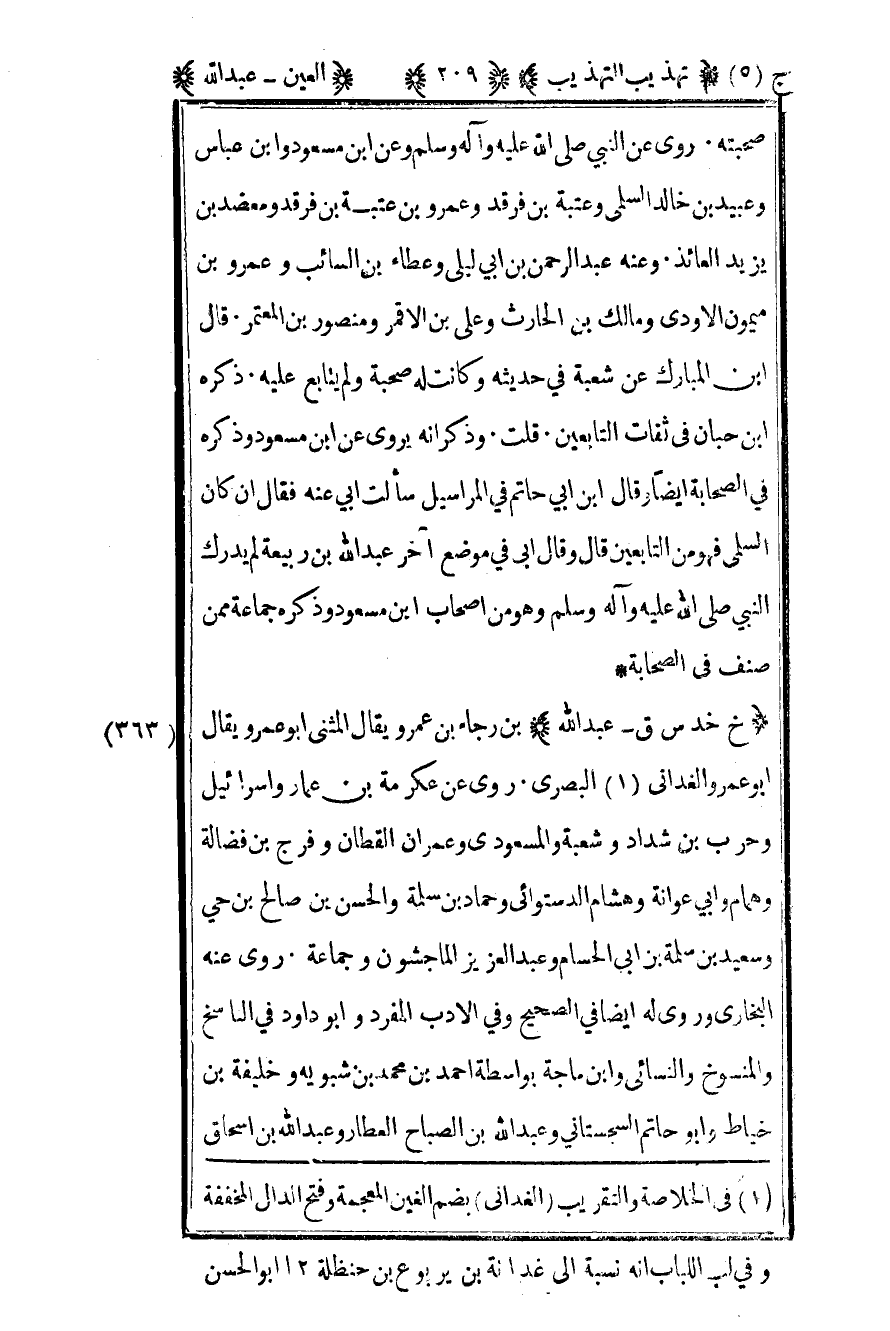 ج (٥) ﴿ تهذيب التهذيب ﴾ ﴿ ٢٠٩ ﴾ ﴿ العين - عبدالله ﴾
صحبته ٠ روى عن النبي صلى الله عليه وآله وسلم وعن ابن مسعود وابن عباس
وعبيد بن خالد السلمى وعتبة بن فرقد وعمرو بن عتبة بن فرقد ومعضد بن
يزيد العائذ ٠ وعنه عبدالرحمن بن ابي ليلى وعطاء بن السائب وعمرو بن
ميمون الاودى ومالك بن الحارث وعلى بن الاقمر ومنصور بن المعتمر ٠ قال
ابن المبارك عن شعبة في حديثه وكانت له صحبة ولم يتابع عليه ٠ ذكره
ابن حبان فى ثقات التابعين ٠ قلت ٠ وذكر انه يروى عن ابن مسعود وذكره
في الصحابة ايضاً وقال ابن ابي حاتم في المراسيل سألت ابي عنه فقال ان كان
السلمى فهو من التابعين قال وقال ابى في موضع آخر عبدالله بن ربيعة لم يدرك
النبي صلى الله عليه وآله وسلم وهو من اصحاب ابن مسعود وذكره جماعة ممن
صنف فى الصحابة *
﴿ خ خد س ق - عبدالله ﴾ بن رجاء بن عمرو يقال المثنى ابو عمرو يقال (٣٦٣)
ابو عمر والغدانى (١) البصرى ٠ روى عن عكرمة بن عمار واسرائيل
وحرب بن شداد وشعبة والمسعودى وعمران القطان وفرج بن فضالة
وهمام وابي عوانة وهشام الدستوائى وحماد بن سلمة والحسن بن صالح بن حي
وسعيد بن سلمة بن ابي الحسام وعبدالعزيز الماجشون وجماعة ٠ روى عنه
البخارى وروى له ايضا في الصحيح وفي الادب المفرد وابو داود في الناسخ
والمنسوخ والنسائى وابن ماجة بواسطة احمد بن محمد بن شبويه وخليفة بن
خياط وابو حاتم السجستاني وعبدالله بن الصباح العطار وعبدالله بن اسحاق
(١) فى الخلاصة والتقريب (الغدانى) بضم الغين المعجمة وفتح الدال المخففة
وفي لب اللباب انه نسبة الى غدانة بن يربوع بن حنظلة ١٢ ابوالحسن